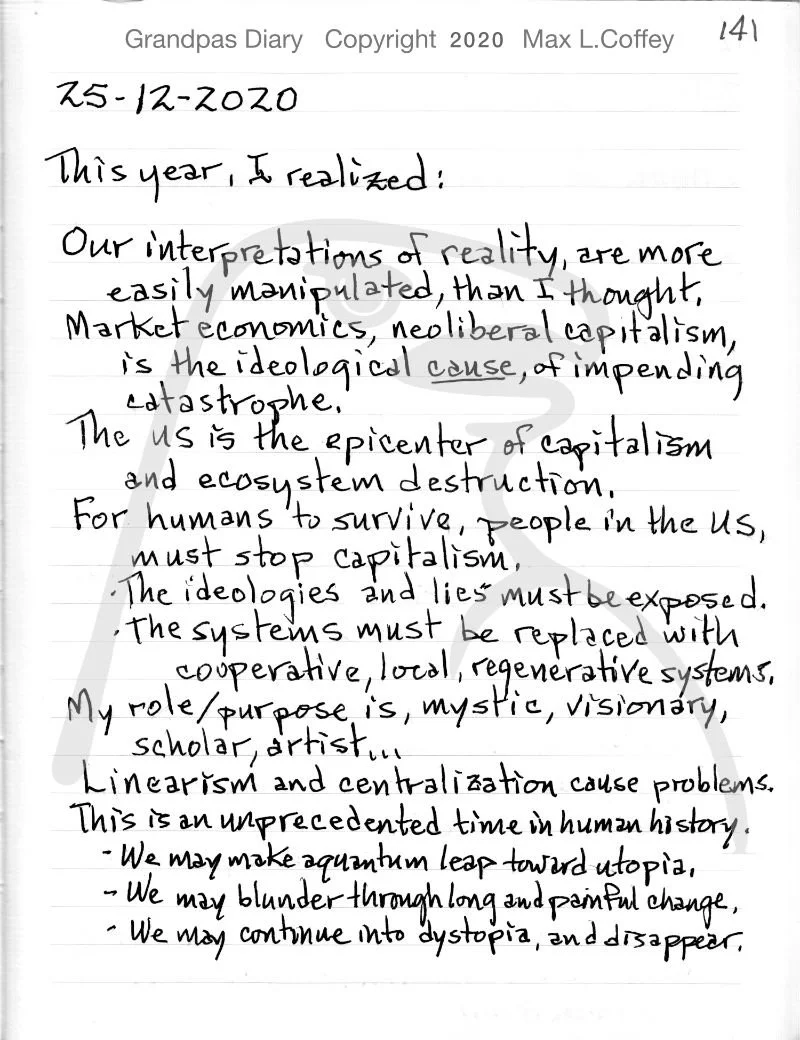 Grandpas Diary Copyright 2020 Max L.Coffey 141
25-12-2020
This year, I realized:
Our interpretations of reality, are more
easily manipulated, than I thought.
Market economics, neoliberal capitalism,
is the ideological cause, of impending
catastrophe.
The US is the epicenter of capitalism
and ecosystem destruction.
For humans to survive, people in the US,
must stop capitalism.
·The ideologies and lies must be exposed.
·The systems must be replaced with
cooperative, local, regenerative systems.
My role/purpose is, mystic, visionary,
scholar, artist...
Linearism and centralization cause problems.
This is an unprecedented time in human history.
- We may make a quantum leap toward utopia.
- We may blunder through long and painful change.
- We may continue into dystopia, and disappear.